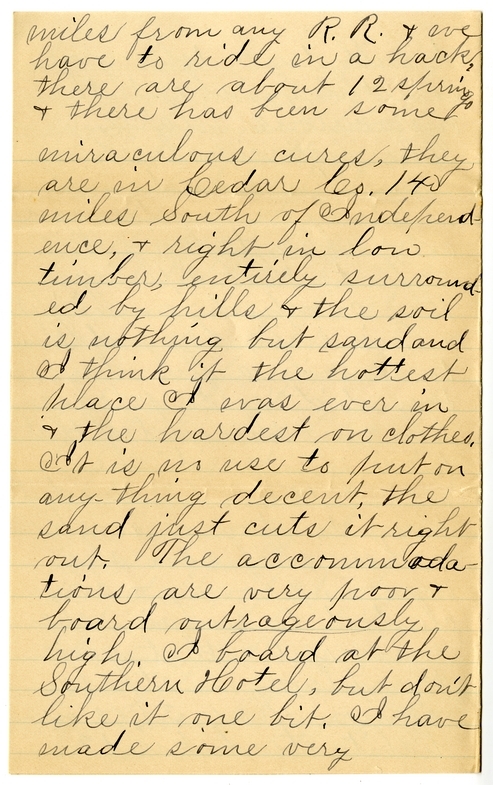 miles from any R. R. & we
have to ride in a hack,
there are about 12 springs
& there has been some
miraculous cures, they
are in Cedar Co. 140
miles South of Independ-
ence, & right in low
timber, entirely surround-
ed by hills & the soil
is nothing but sand and
I think it the hottest
place I was ever in
& the hardest on clothes.
It is no use to put on
any-thing decent, the
sand just cuts it right
out. The accommoda-
tions are very poor &
board outrageously
high. I board at the
Southern Hotel, but don't
like it one bit. I have
made some very